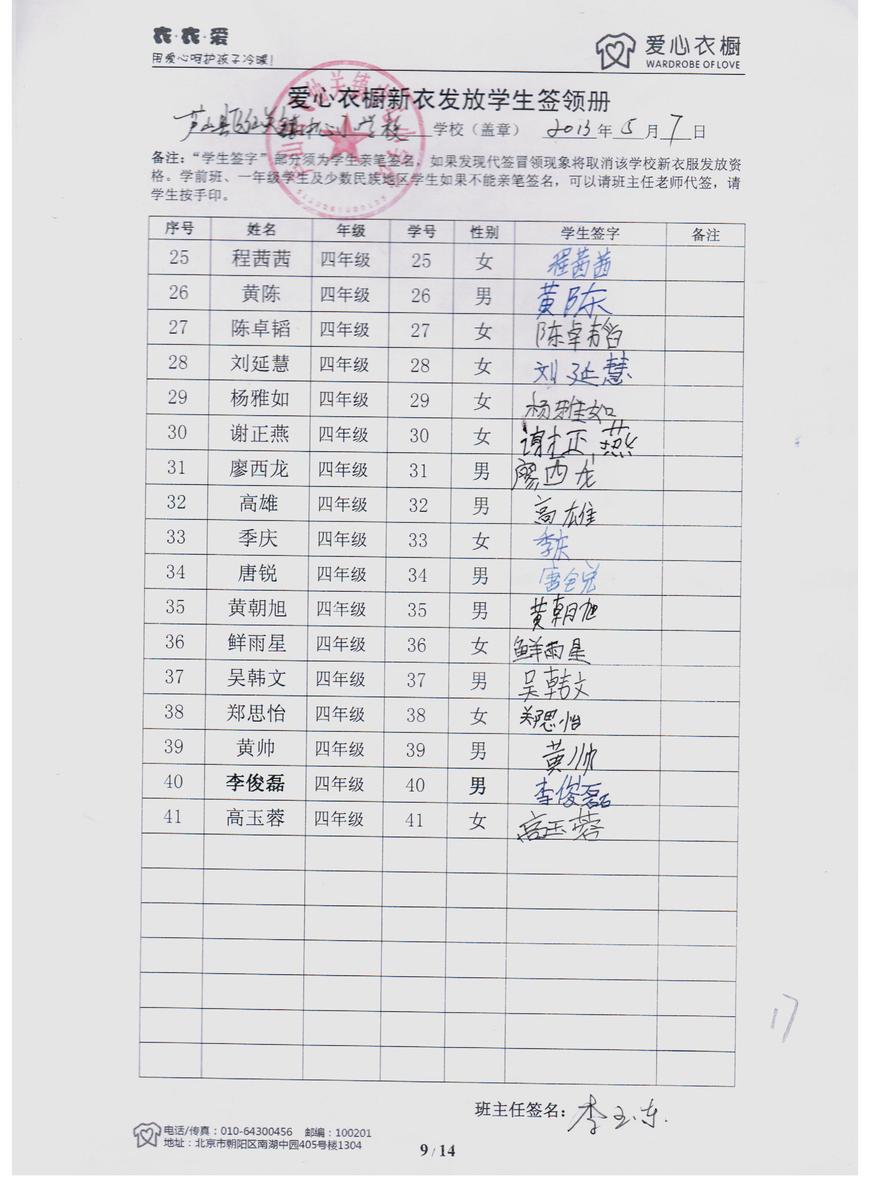 衣·衣·爱
用爱心呵护孩子冷暖!
爱心衣橱
WARDROBE OF LOVE
爱心衣橱新衣发放学生签领册
芦山县 关镇中心小学校 学校（盖章） 2013 年 5 月 7 日
备注：“学生签字”部分须为学生亲笔签名，如果发现代签冒领现象将取消该学校新衣服发放资
格。学前班、一年级学生及少数民族地区学生如果不能亲笔签名，可以请班主任老师代签，请
学生按手印。
序号 姓名 年级 学号 性别 学生签字 备注
25 程茜茜 四年级 25 女 程茜茜
26 黄陈 四年级 26 男 黄陈
27 陈卓韬 四年级 27 女 陈卓韬
28 刘延慧 四年级 28 女 刘延慧
29 杨雅如 四年级 29 女 杨雅如
30 谢正燕 四年级 30 女 谢正燕
31 廖西龙 四年级 31 男 廖西龙
32 高雄 四年级 32 男 高雄
33 季庆 四年级 33 女 季庆
34 唐锐 四年级 34 男 唐锐
35 黄朝旭 四年级 35 男 黄朝旭
36 鲜雨星 四年级 36 女 鲜雨星
37 吴韩文 四年级 37 男 吴韩文
38 郑思怡 四年级 38 女 郑思怡
39 黄帅 四年级 39 男 黄帅
40 李俊磊 四年级 40 男 李俊磊
41 高玉蓉 四年级 41 女 高玉蓉
17
班主任签名： 李玉东
电话/传真：010-64300456 邮编：100201
地址：北京市朝阳区南湖中园405号楼1304
9 / 14